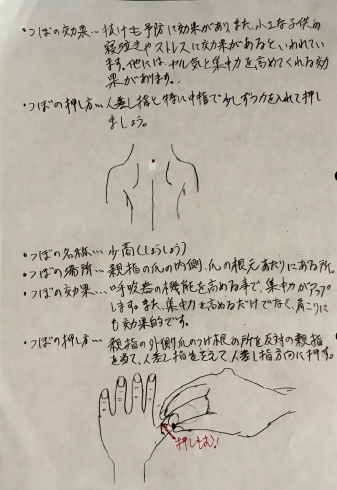 ・つぼの効果… 抜け毛予防に効果があり、また、小さな子供の
寝泣きやストレスに効果があるといわれてい
ます。他には、ヤル気と集中力を高めてくれる効
果があります。
・つぼの押し方… 人差し指と特に中指で少しずつ力を入れて押し
ましょう。
・つぼの名称… 少商(しょうしょう)
・つぼの場所… 親指の爪の内側、爪の根元あたりにある所。
・つぼの効果… 呼吸器の機能を高める事で、集中力がアップ
します。また、集中力を高めるだけでなく、肩こりに
も効果的です。
・つぼの押し方… 親指の外側爪のつけ根の所を反対の親指
を当て、人差し指を支えて人差し指方向に押す。
押しもむ!